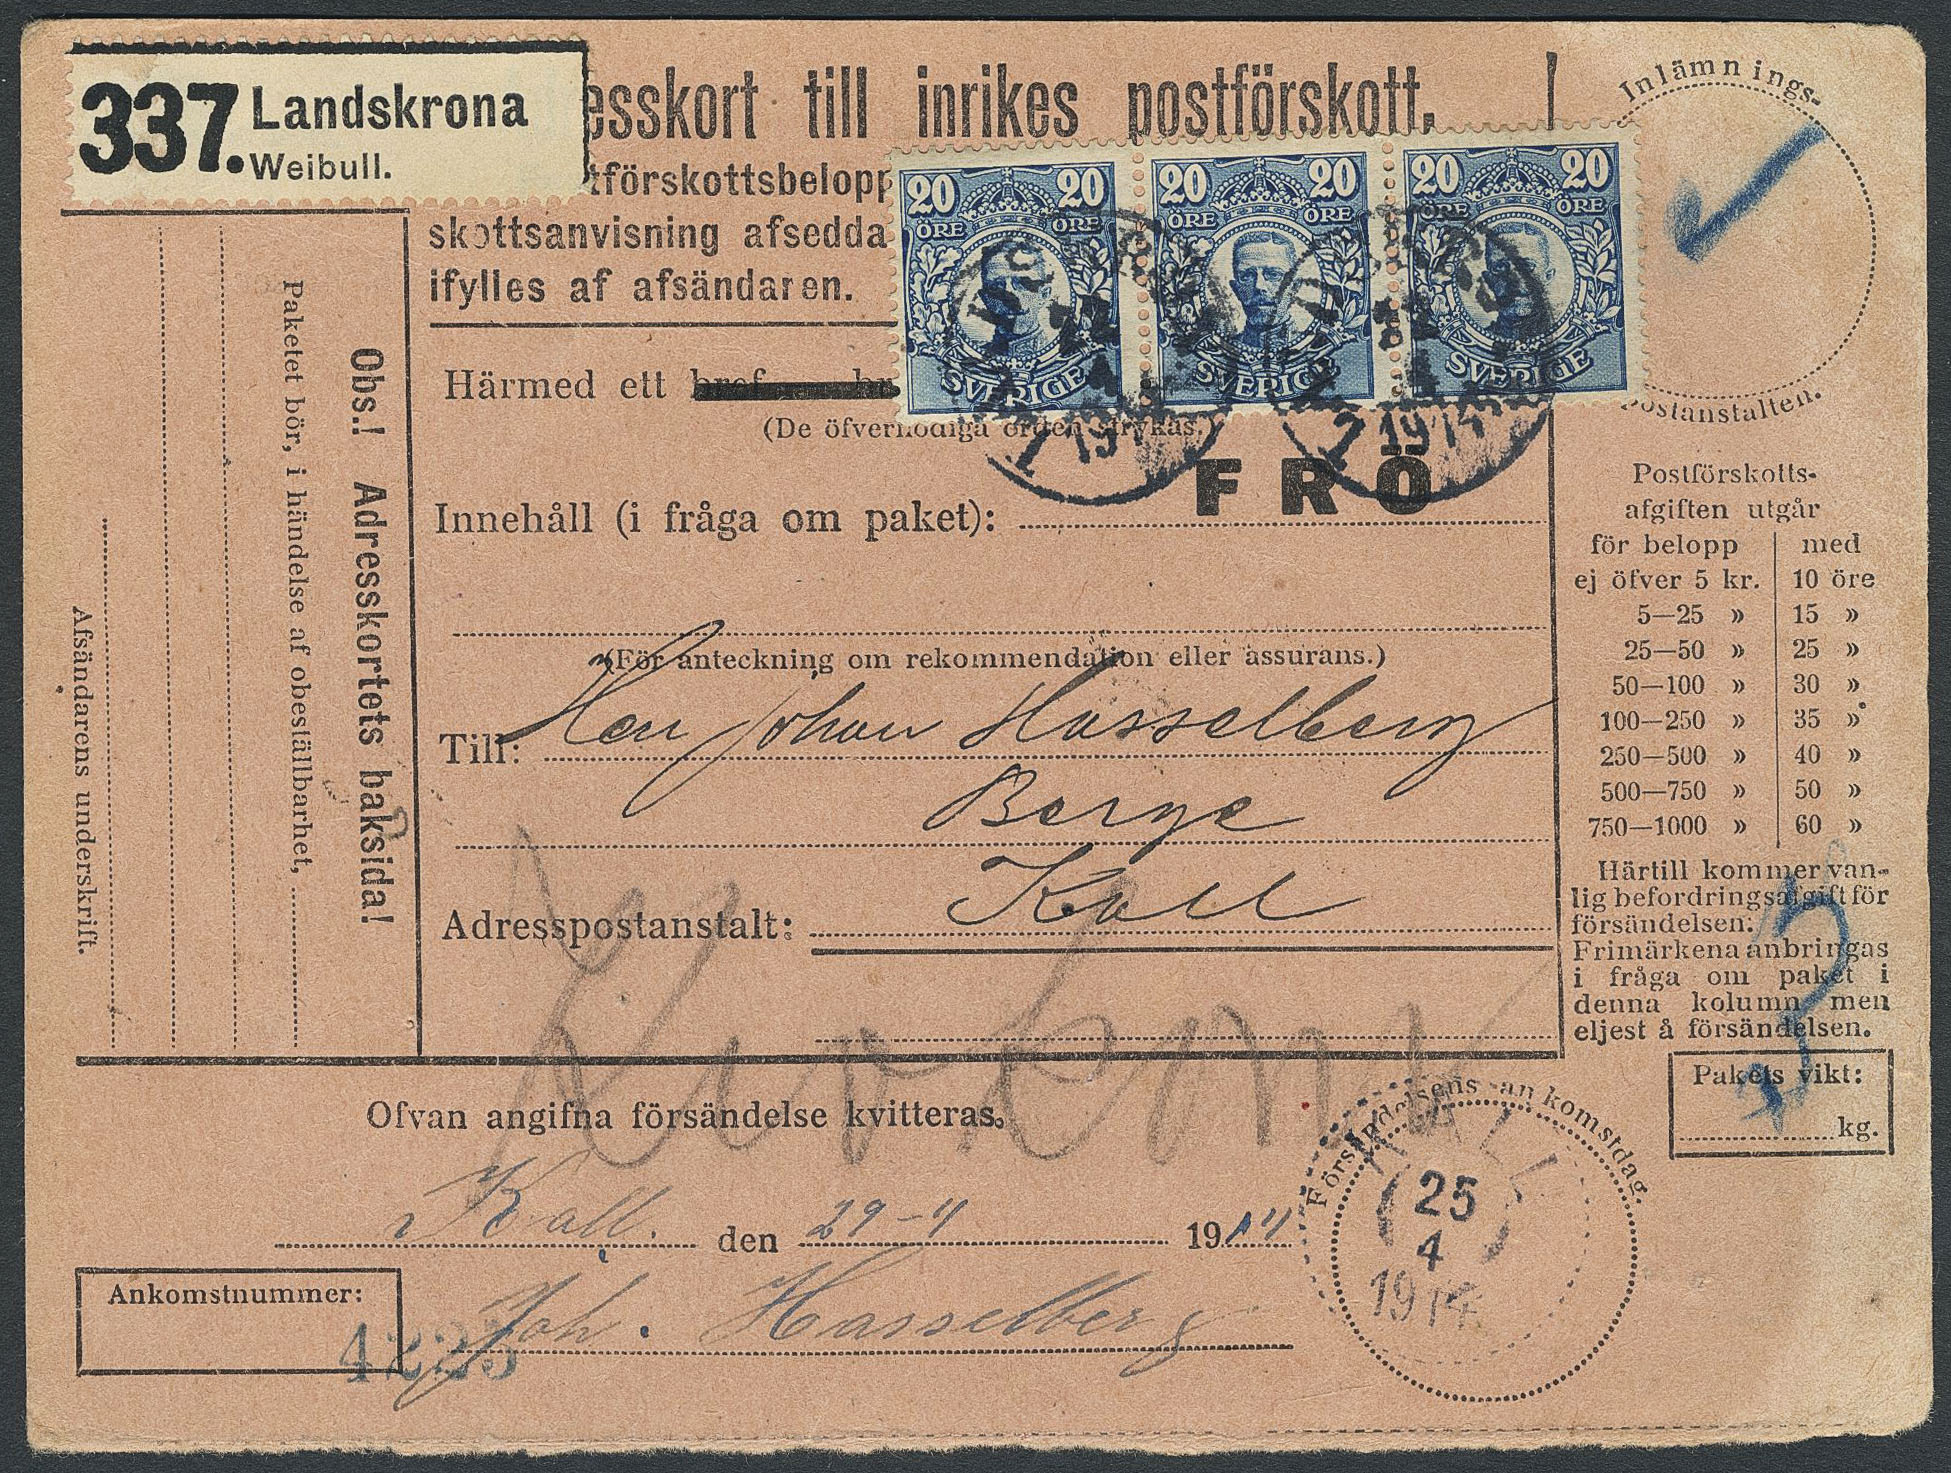 337. Landskrona
Weibull.
esskort till inrikes postförskott.
tförskottsbelopp
skottsanvisning afsedda
ifylles af afsändaren.
20 20
ÖRE ÖRE
SVERIGE
20 20
ÖRE ÖRE
SVERIGE
20 20
ÖRE ÖRE
SVERIGE
Inlämnings-
postanstalten.
Härmed ett bref br
(De öfverflödiga orden strykas.)
1914
Innehåll (i fråga om paket): FRÖ
(För anteckning om rekommendation eller assurans.)
Till: Herr Johan Hasselberg
Berge
Adresspostanstalt: Kall
Obs.! Adresskortets baksida!
Paketet bör, i händelse af obeställbarhet,
Afsändarens underskrift.
Postförskotts-
afgiften utgår
för belopp med
ej öfver 5 kr. 10 öre
5—25 » 15 »
25—50 » 25 »
50—100 » 30 »
100—250 » 35 »
250—500 » 40 »
500—750 » 50 »
750—1000 » 60 »
Härtill kommer van-
lig befordringsafgift för
försändelsen:
Frimärkena anbringas
i fråga om paket i
denna kolumn men
eljest å försändelsen.
Pakets vikt:
kg.
Ofvan angifna försändelse kvitteras.
Kall. den 29-4 1914
Joh. Hasselberg
Ankomstnummer:
4225
Försändelsens ankomstdag.
KALL
25
4
1914